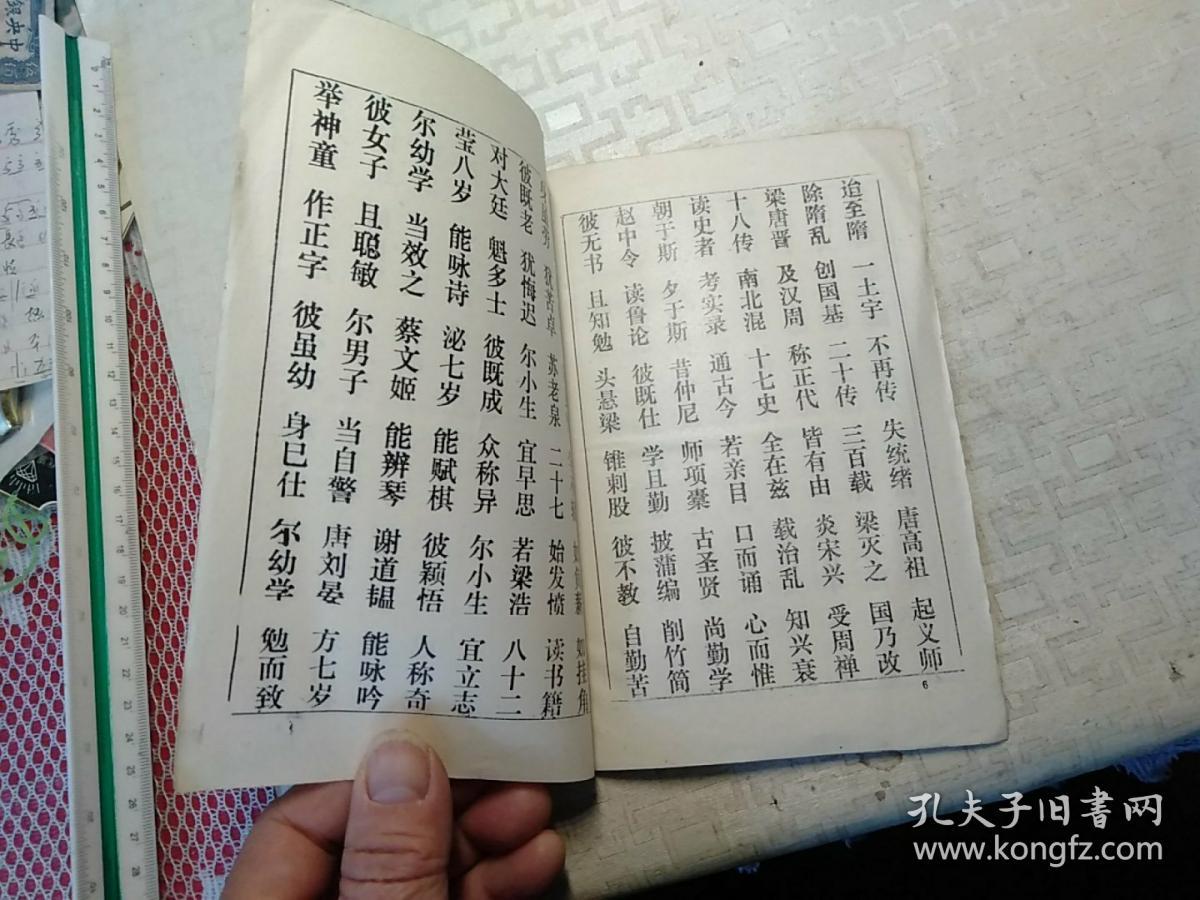 迨至隋 一土宇 不再传 失统绪 唐高祖 起义师
除隋乱 创国基 二十传 三百载 梁灭之 国乃改
梁唐晋 及汉周 称正代 皆有由 炎宋兴 受周禅
十八传 南北混 十七史 全在兹 载治乱 知兴衰
读史者 考实录 通古今 若亲目 口而诵 心而惟
朝于斯 夕于斯 昔仲尼 师项囊 古圣贤 尚勤学
赵中令 读鲁论 彼既仕 学且勤 披蒲编 削竹简
彼无书 且知勉 头悬梁 锥刺股 彼不教 自勤苦
6
如挂角
身虽劳 犹苦卓 苏老泉 二十七 始发愤 读书籍
彼既老 犹悔迟 尔小生 宜早思 若梁浩 八十二
对大廷 魁多士 彼既成 众称异 尔小生 宜立志
莹八岁 能咏诗 泌七岁 能赋棋 彼颖悟 人称奇
尔幼学 当效之 蔡文姬 能辨琴 谢道韫 能咏吟
彼女子 且聪敏 尔男子 当自警 唐刘晏 方七岁
举神童 作正字 彼虽幼 身巳仕 尔幼学 勉而致
孔夫子旧書网
www.kongfz.com